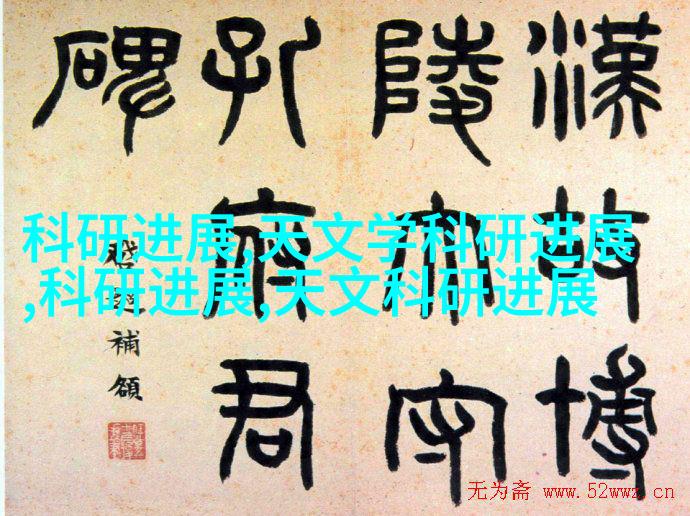 漢故博
陵太守
孔府君
碑
補額
科研进展,天文学科研进展
,科研进展,天文科研进展
无为斋 www.52wwz.cn